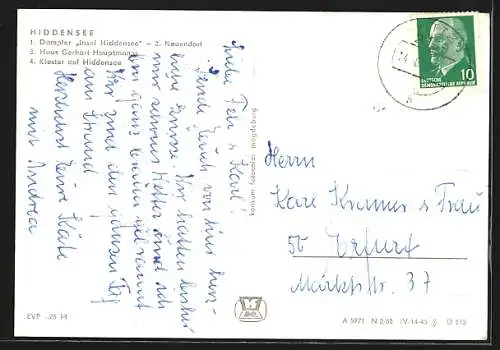 HIDDENSEE
1. Dampfer „Insel Hiddensee“ – 2. Neuendorf
3. Haus Gerhart Hauptmanns
4. Kloster auf Hiddensee
Liebe Fela & Karl!
Sende Euch von hier herz-
liche Grüsse. Wir hatten bisher
nur schönes Wetter und ich
bin ganz braun gebrannt
Wir sind den ganzen Tag
am Strand
Herzlichst Deine Käte
mit Andrea
konsum fotocenter magdeburg
10
DEUTSCHE
DEMOKRATISCHE REPUBLIK
Herrn
Karl Kramer & Frau
50 Erfurt
Marktstr. 37
EVP -,25 M
A 5971 N 2/68 IV-14-45 G 515